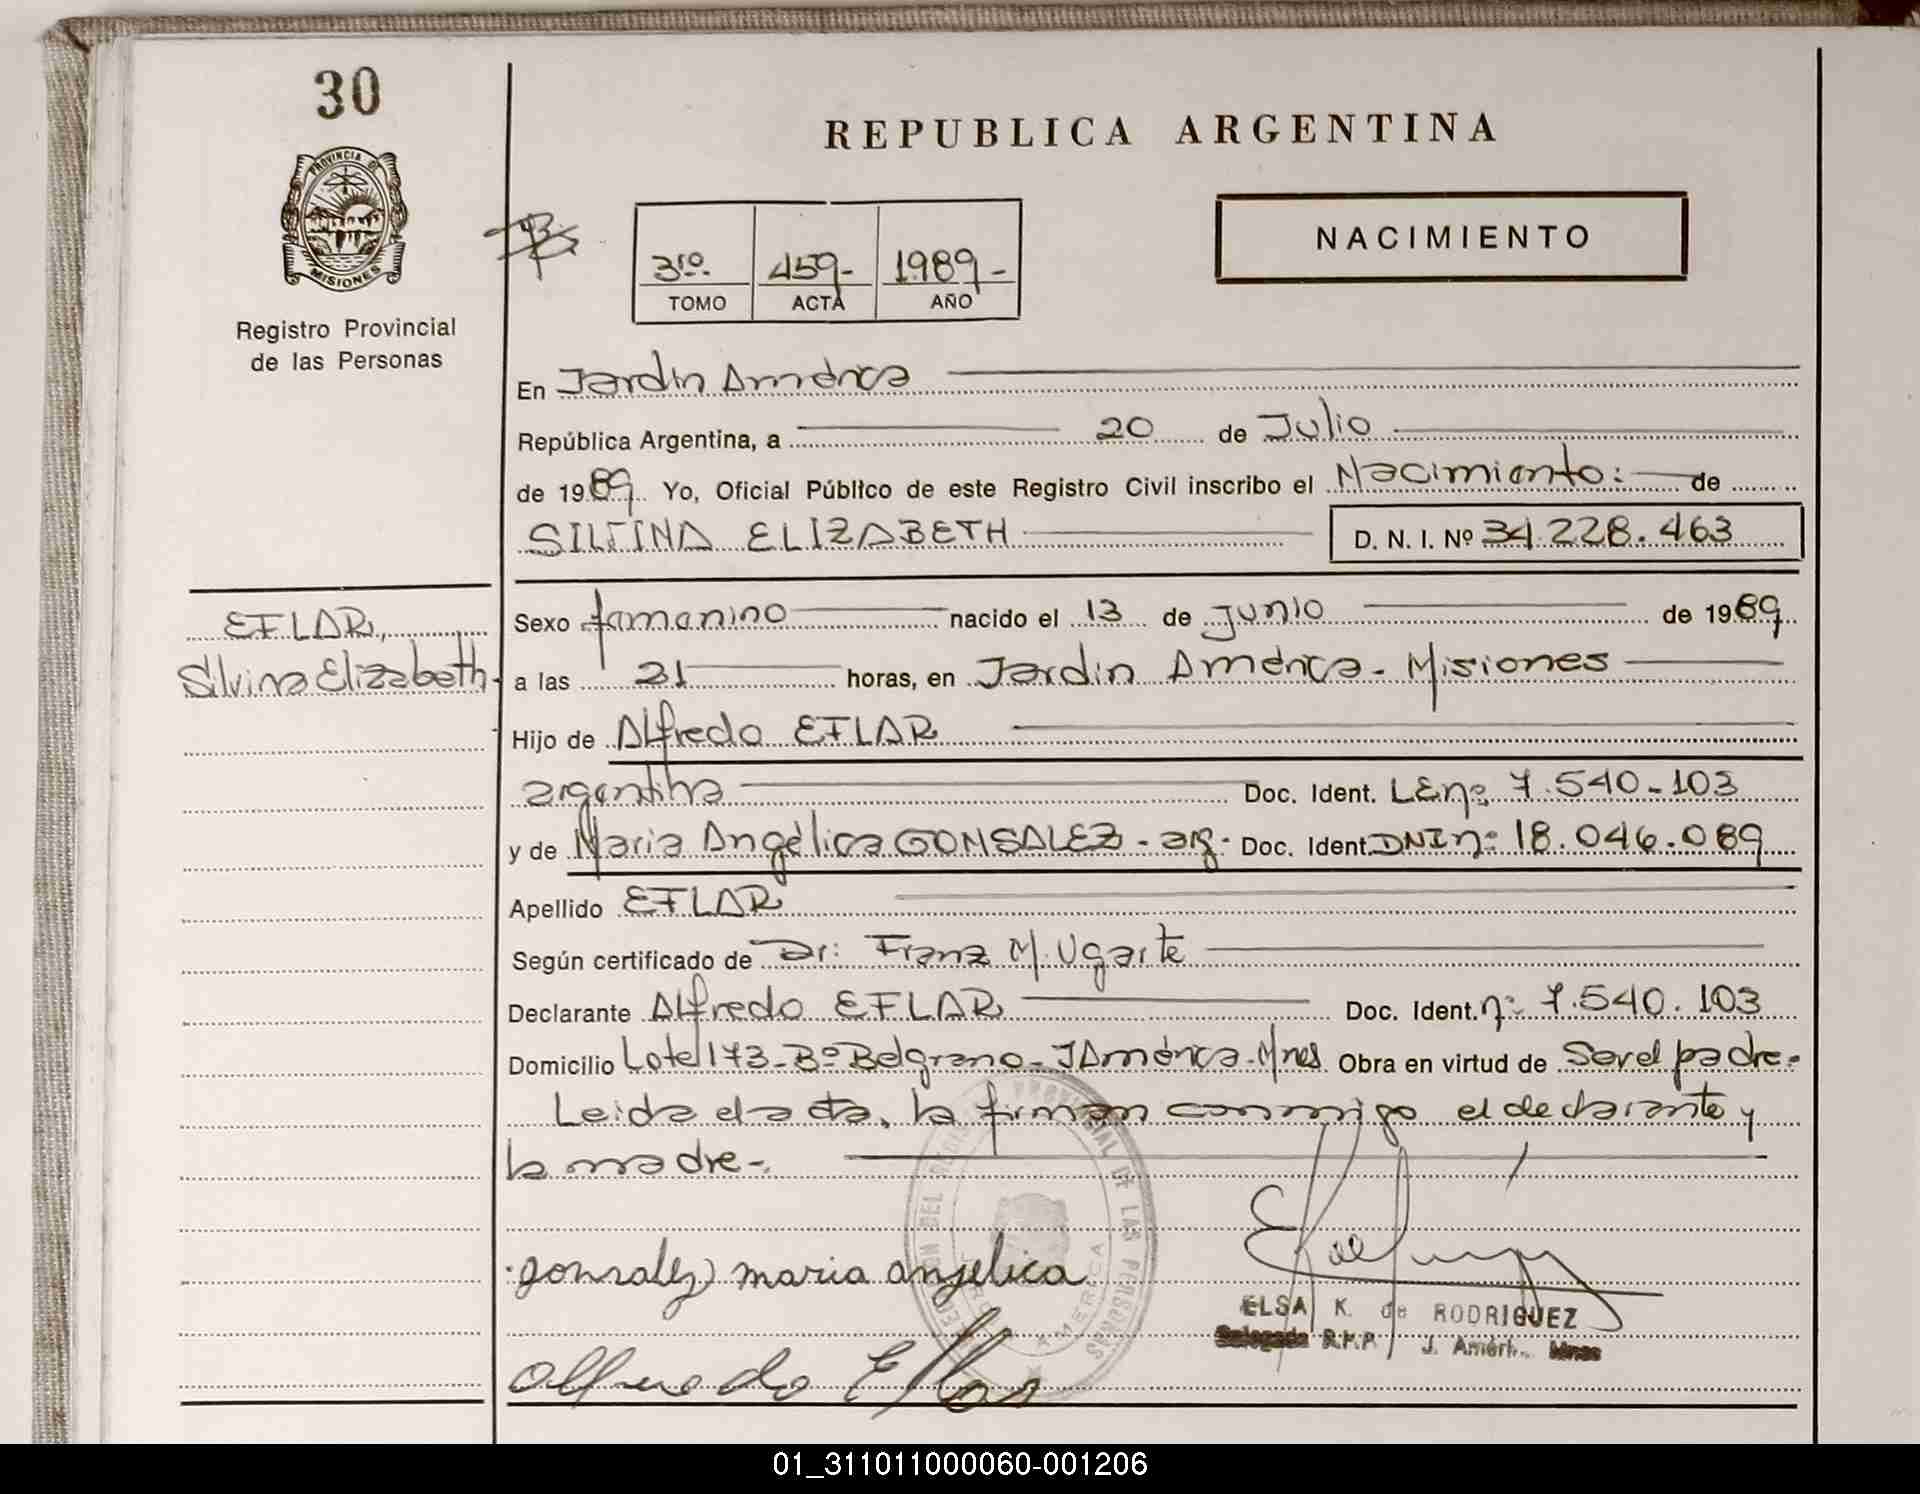 30
PROVINCIA DE
MISIONES
Registro Provincial
de las Personas
REPUBLICA ARGENTINA
NACIMIENTO
3ro. 459- 1989-
TOMO ACTA AÑO
En Jardin América
República Argentina, a 20 de Julio
de 1989 Yo, Oficial Público de este Registro Civil inscribo el Nacimiento: de
SILVINA ELIZABETH D. N. I. Nº 34.228.463
EFLAR,
Silvina Elizabeth-
Sexo femenino nacido el 13 de Junio de 1989
a las 21 horas, en Jardin América - Misiones
Hijo de Alfredo EFLAR
argentina Doc. Ident. LEnº 7.540-103
y de Maria Angélica GONSALEZ - arg- Doc. Ident. DNI nº 18.046.089
Apellido EFLAR
Según certificado de Dr: Franz M. Ugarte
Declarante Alfredo EFLAR Doc. Ident. nº 7.540.103
Domicilio Lote 173-Bº Belgrano-JAmérica-Mnes Obra en virtud de Ser el padre-
Leida el acta, la firman conmigo el declarante y
la madre-
gonzalez maria anjelica
ELSA K. de RODRIGUEZ
Delegada R.P.P. J. Améri. Mnes
alfredo Eflar
01_311011000060-001206